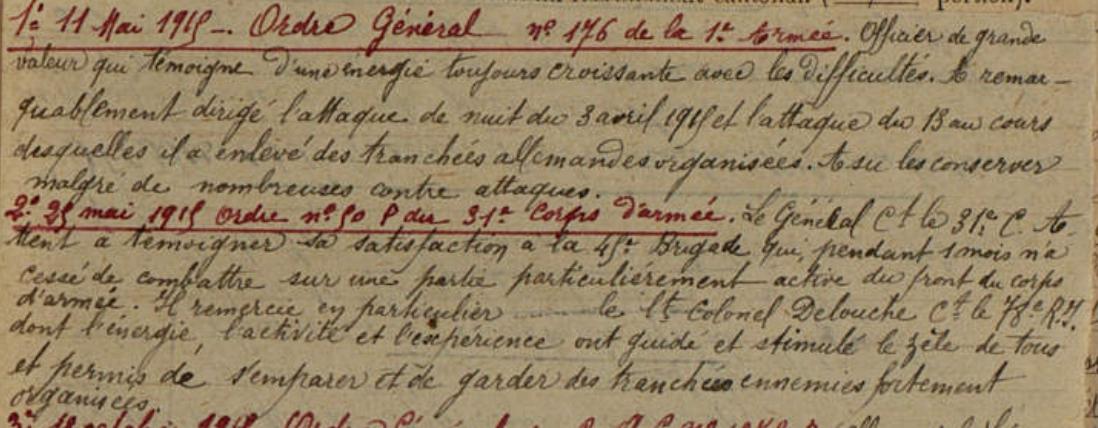 1° 11 Mai 1915 _. Ordre Général n° 176 de la 1re Armée. Officier de grande
valeur qui témoigne d'une énergie toujours croissante avec les difficultés. A remar-
quablement dirigé l'attaque de nuit du 3 avril 1915 et l'attaque du 13 au cours
desquelles il a enlevé des tranchées allemandes organisées. A su les conserver
malgré de nombreuses contre attaques.
2° 25 mai 1915 Ordre n° 50 P du 31e Corps d'armée. Le Général Ct le 31e C. A.
tient à témoigner sa satisfaction à la 45e Brigade qui, pendant 1 mois n'a
cessé de combattre sur une partie particulièrement active du front du corps
d'armée. Il remercie en particulier le Lt Colonel Delouche Ct le 78e R.I.
dont l'énergie, l'activité et l'expérience ont guidé et stimulé le zèle de tous
et permis de s'emparer et de garder des tranchées ennemies fortement
organisées.